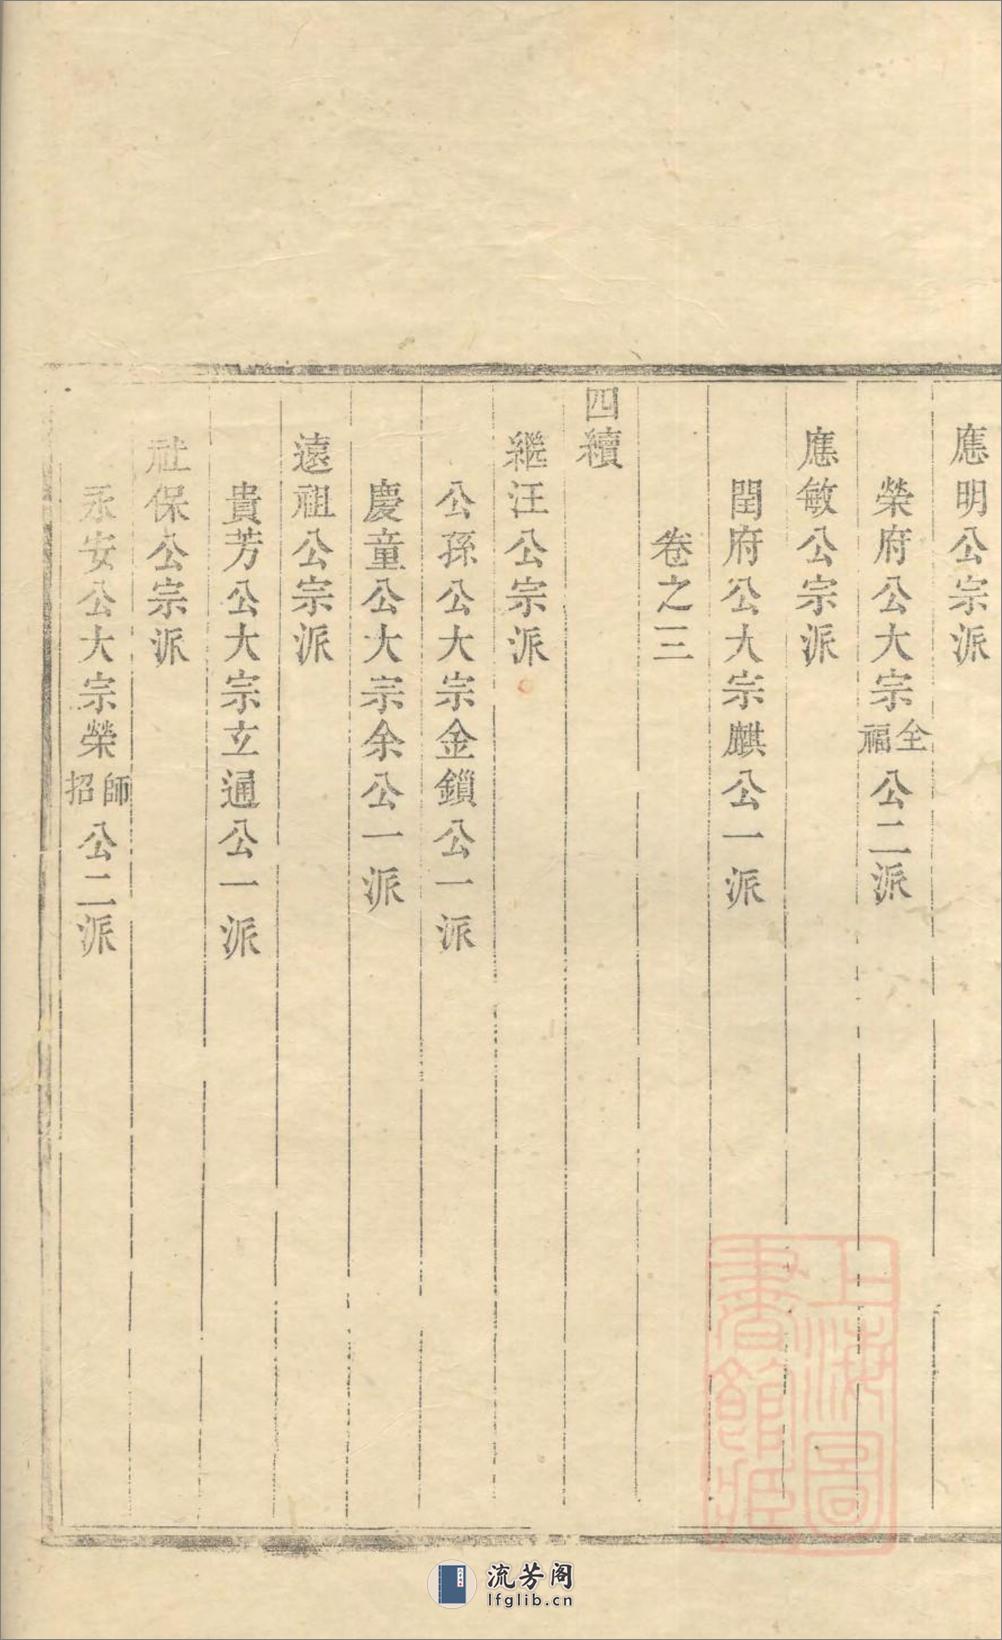 應明公宗派
榮府公大宗全福公二派
應敏公宗派
閏府公大宗麒公一派
卷之三
四續
繼汪公宗派
公孫公大宗金鎖公一派
慶童公大宗余公一派
遠祖公宗派
貴芳公大宗立通公一派
社保公宗派
永安公大宗榮師招公二派
上海圖
書館藏
流芳阁
lfglib.cn